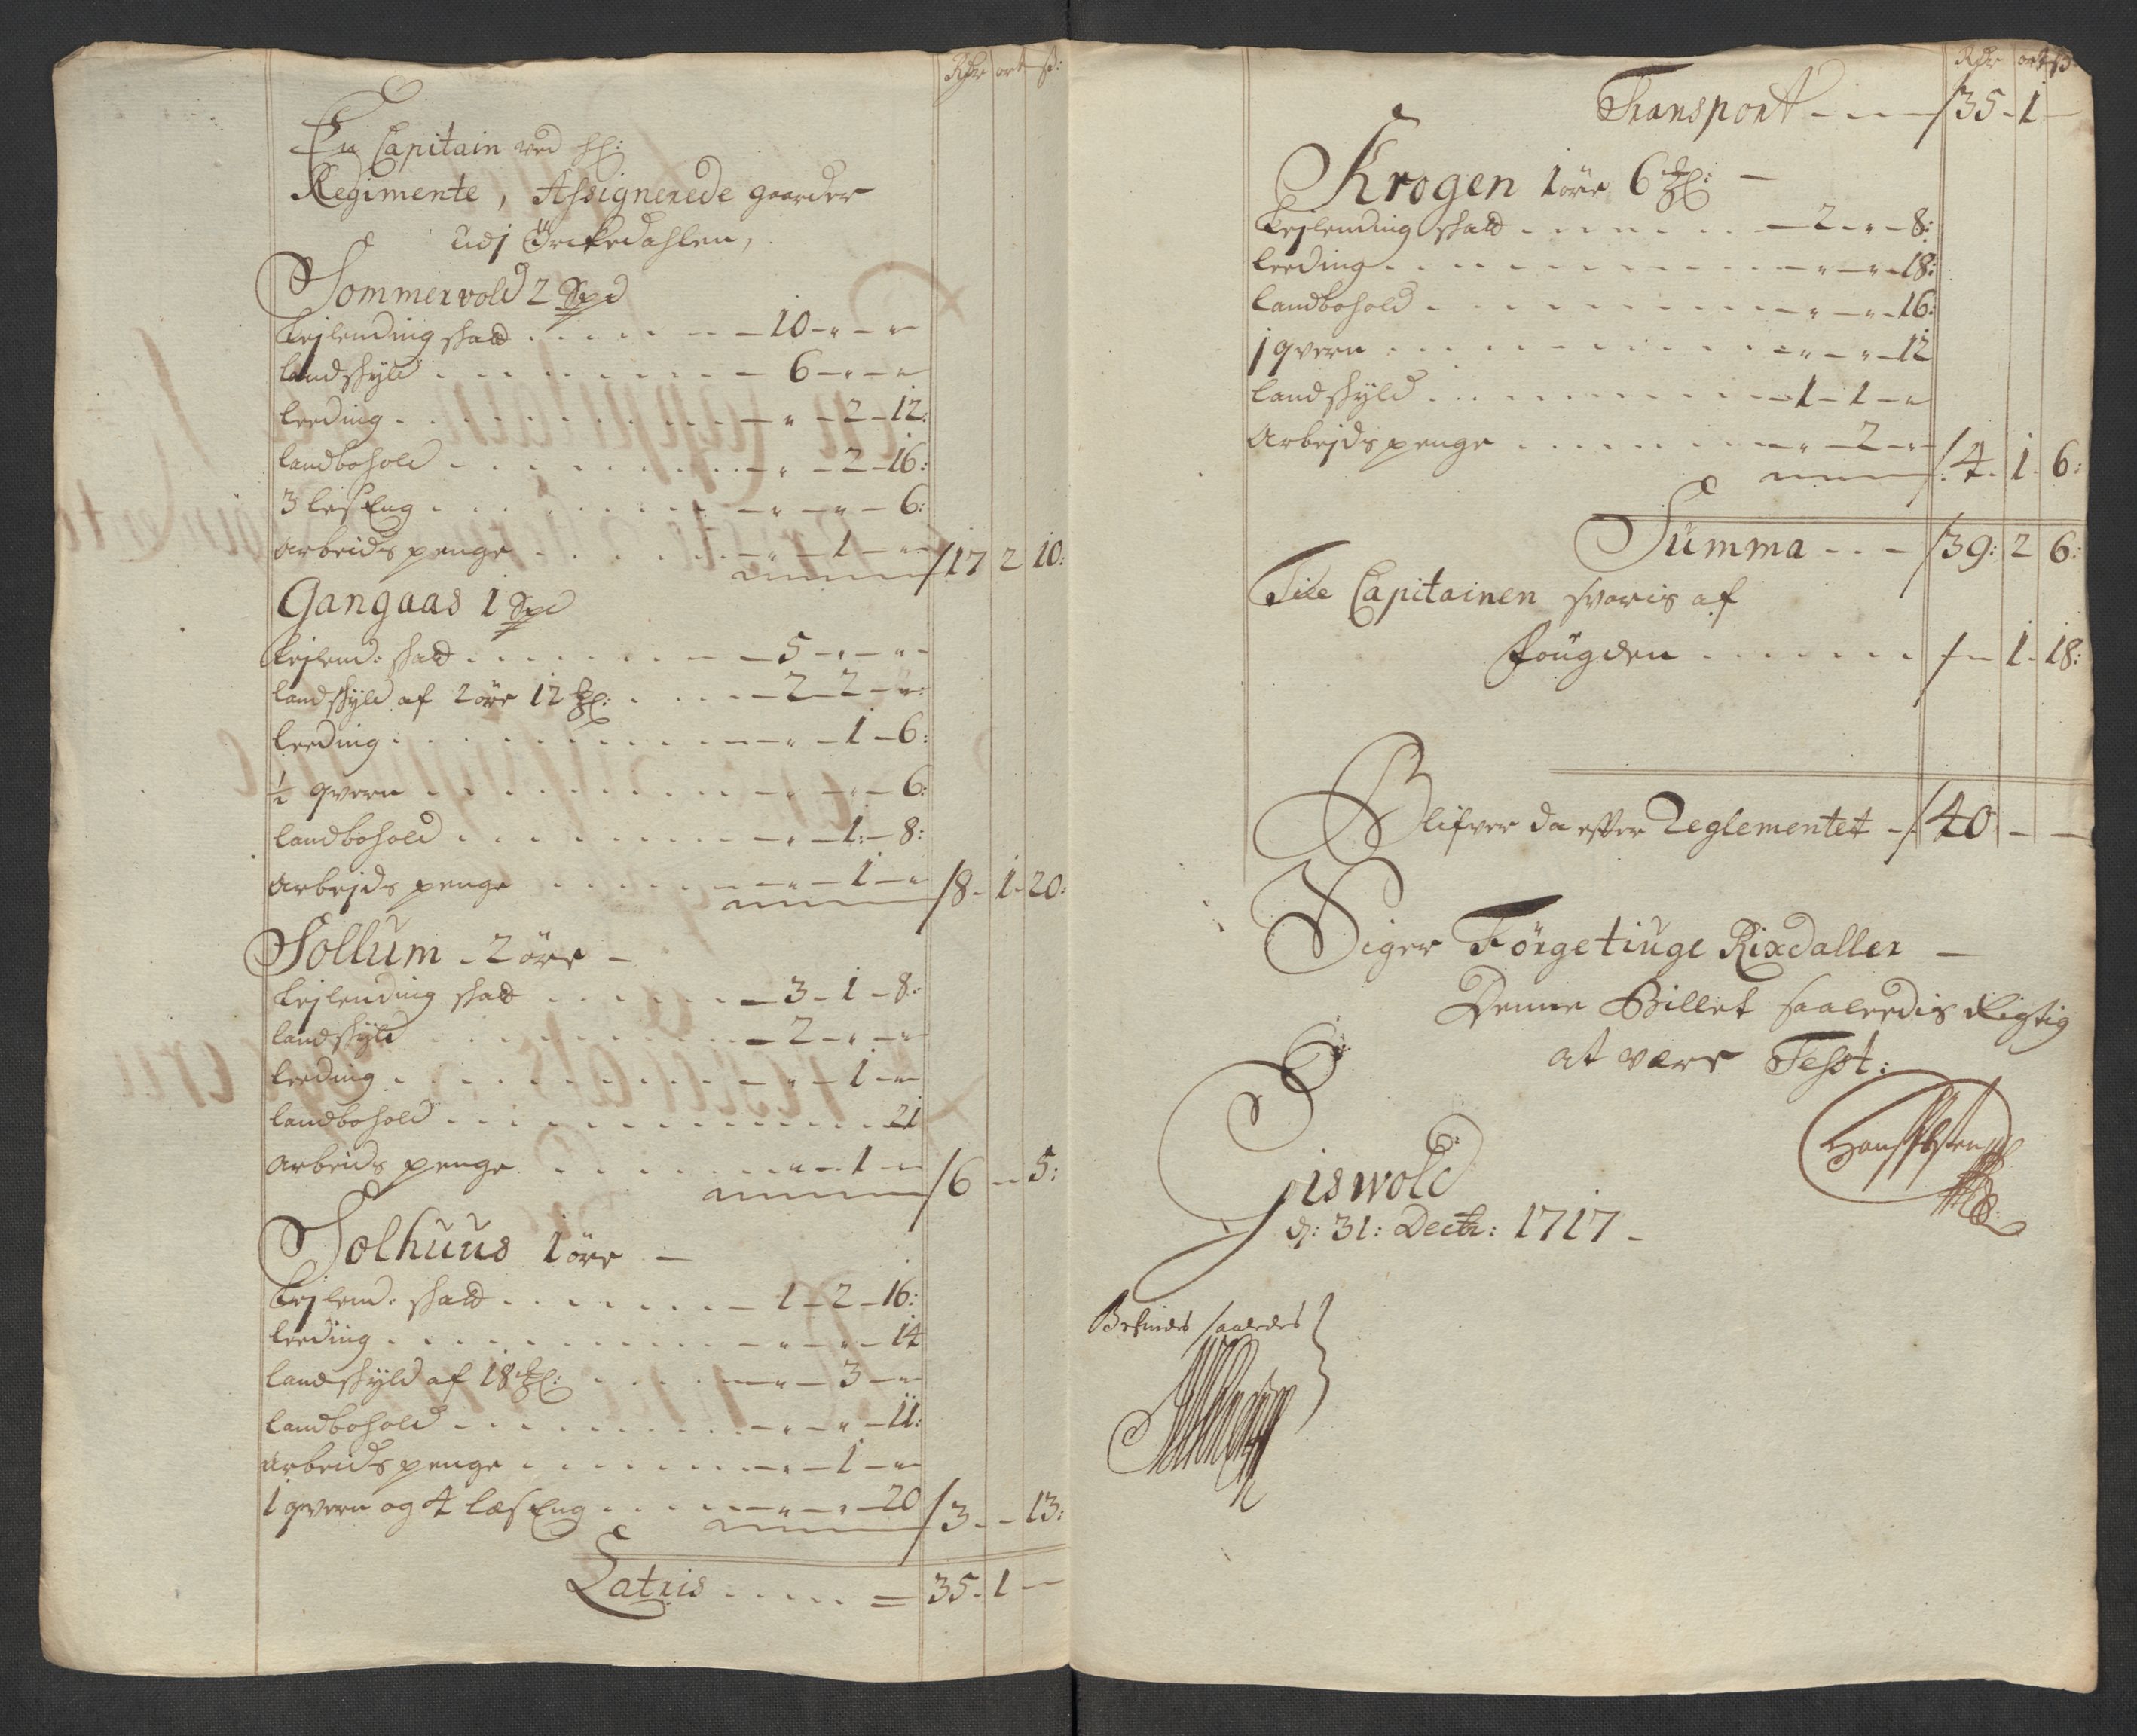 Rdr ort ß:
En Capitain ved hl:
Regimente, Assignerede gaarder
udj Örckedahlen,
Sommervold 2 Spd
Leilending skatt - 10 - " - "
Landskyld - 6 - " - "
Leeding - " - 2 - 12:
Landbohold - " - 2 - 16:
3 les Eng - " - " - 6:
Arbeids penge - " - 1 - " /17 2 10:
Gangaas 1 Spd
Lejlend: skatt - 5 - " - "
Landskyld af 2 öre 12 - 2 - 2 - ":
Leeding - " - 1 - 6:
½ qvern - " - " - 6:
Landbohold - " - 1: - 8:
Arbejds penge - " - 1 - " /8 - 1 - 20:
Sollum - 2 öre -
Lejlending skatt - 3 - 1 - 8:
Landskyld - 2 - " - "
Leeding - " - 1 - "
Landbohold - 21
Arbeids penge - " - 1 - " /6 - 5:
Solhuus 1 öre -
Lejlend: skatt - 1 - 2 - 16:
Leeding - " - " - 14
Landskyld af 18 - " - 3 - "
Landbohold - " - " - 11:
Arbeids penge - " - 1 - "
1 qvern og 4 læs Eng - " - " - 20 /3 - - 13:
Latris = 35 - 1 -
Rdr ort ß:
Transport - /35 - 1 -
Krogen 1 öre 6 -
Lejlending skatt - 2 - " - 8:
Leeding - " - " - 18:
Landbohold - " - " - 16:
1 qvern - " - " - 12
Landskyld - 1 - 1 - "
Arbejds penge - " - 2 - " /4 - 1 - 6:
Summa - /39: 2 6:
Till Capitainen svaris af
fougden - /- 1 - 18:
Blifver da efter Reglementet - /40 - -
Siger Förgetiuge Rixdaller -
Denne Billet saaleedis Rigtig
at være Test:
Giswold
d: 31: Dectr: 1717 -
Befindes saaledes